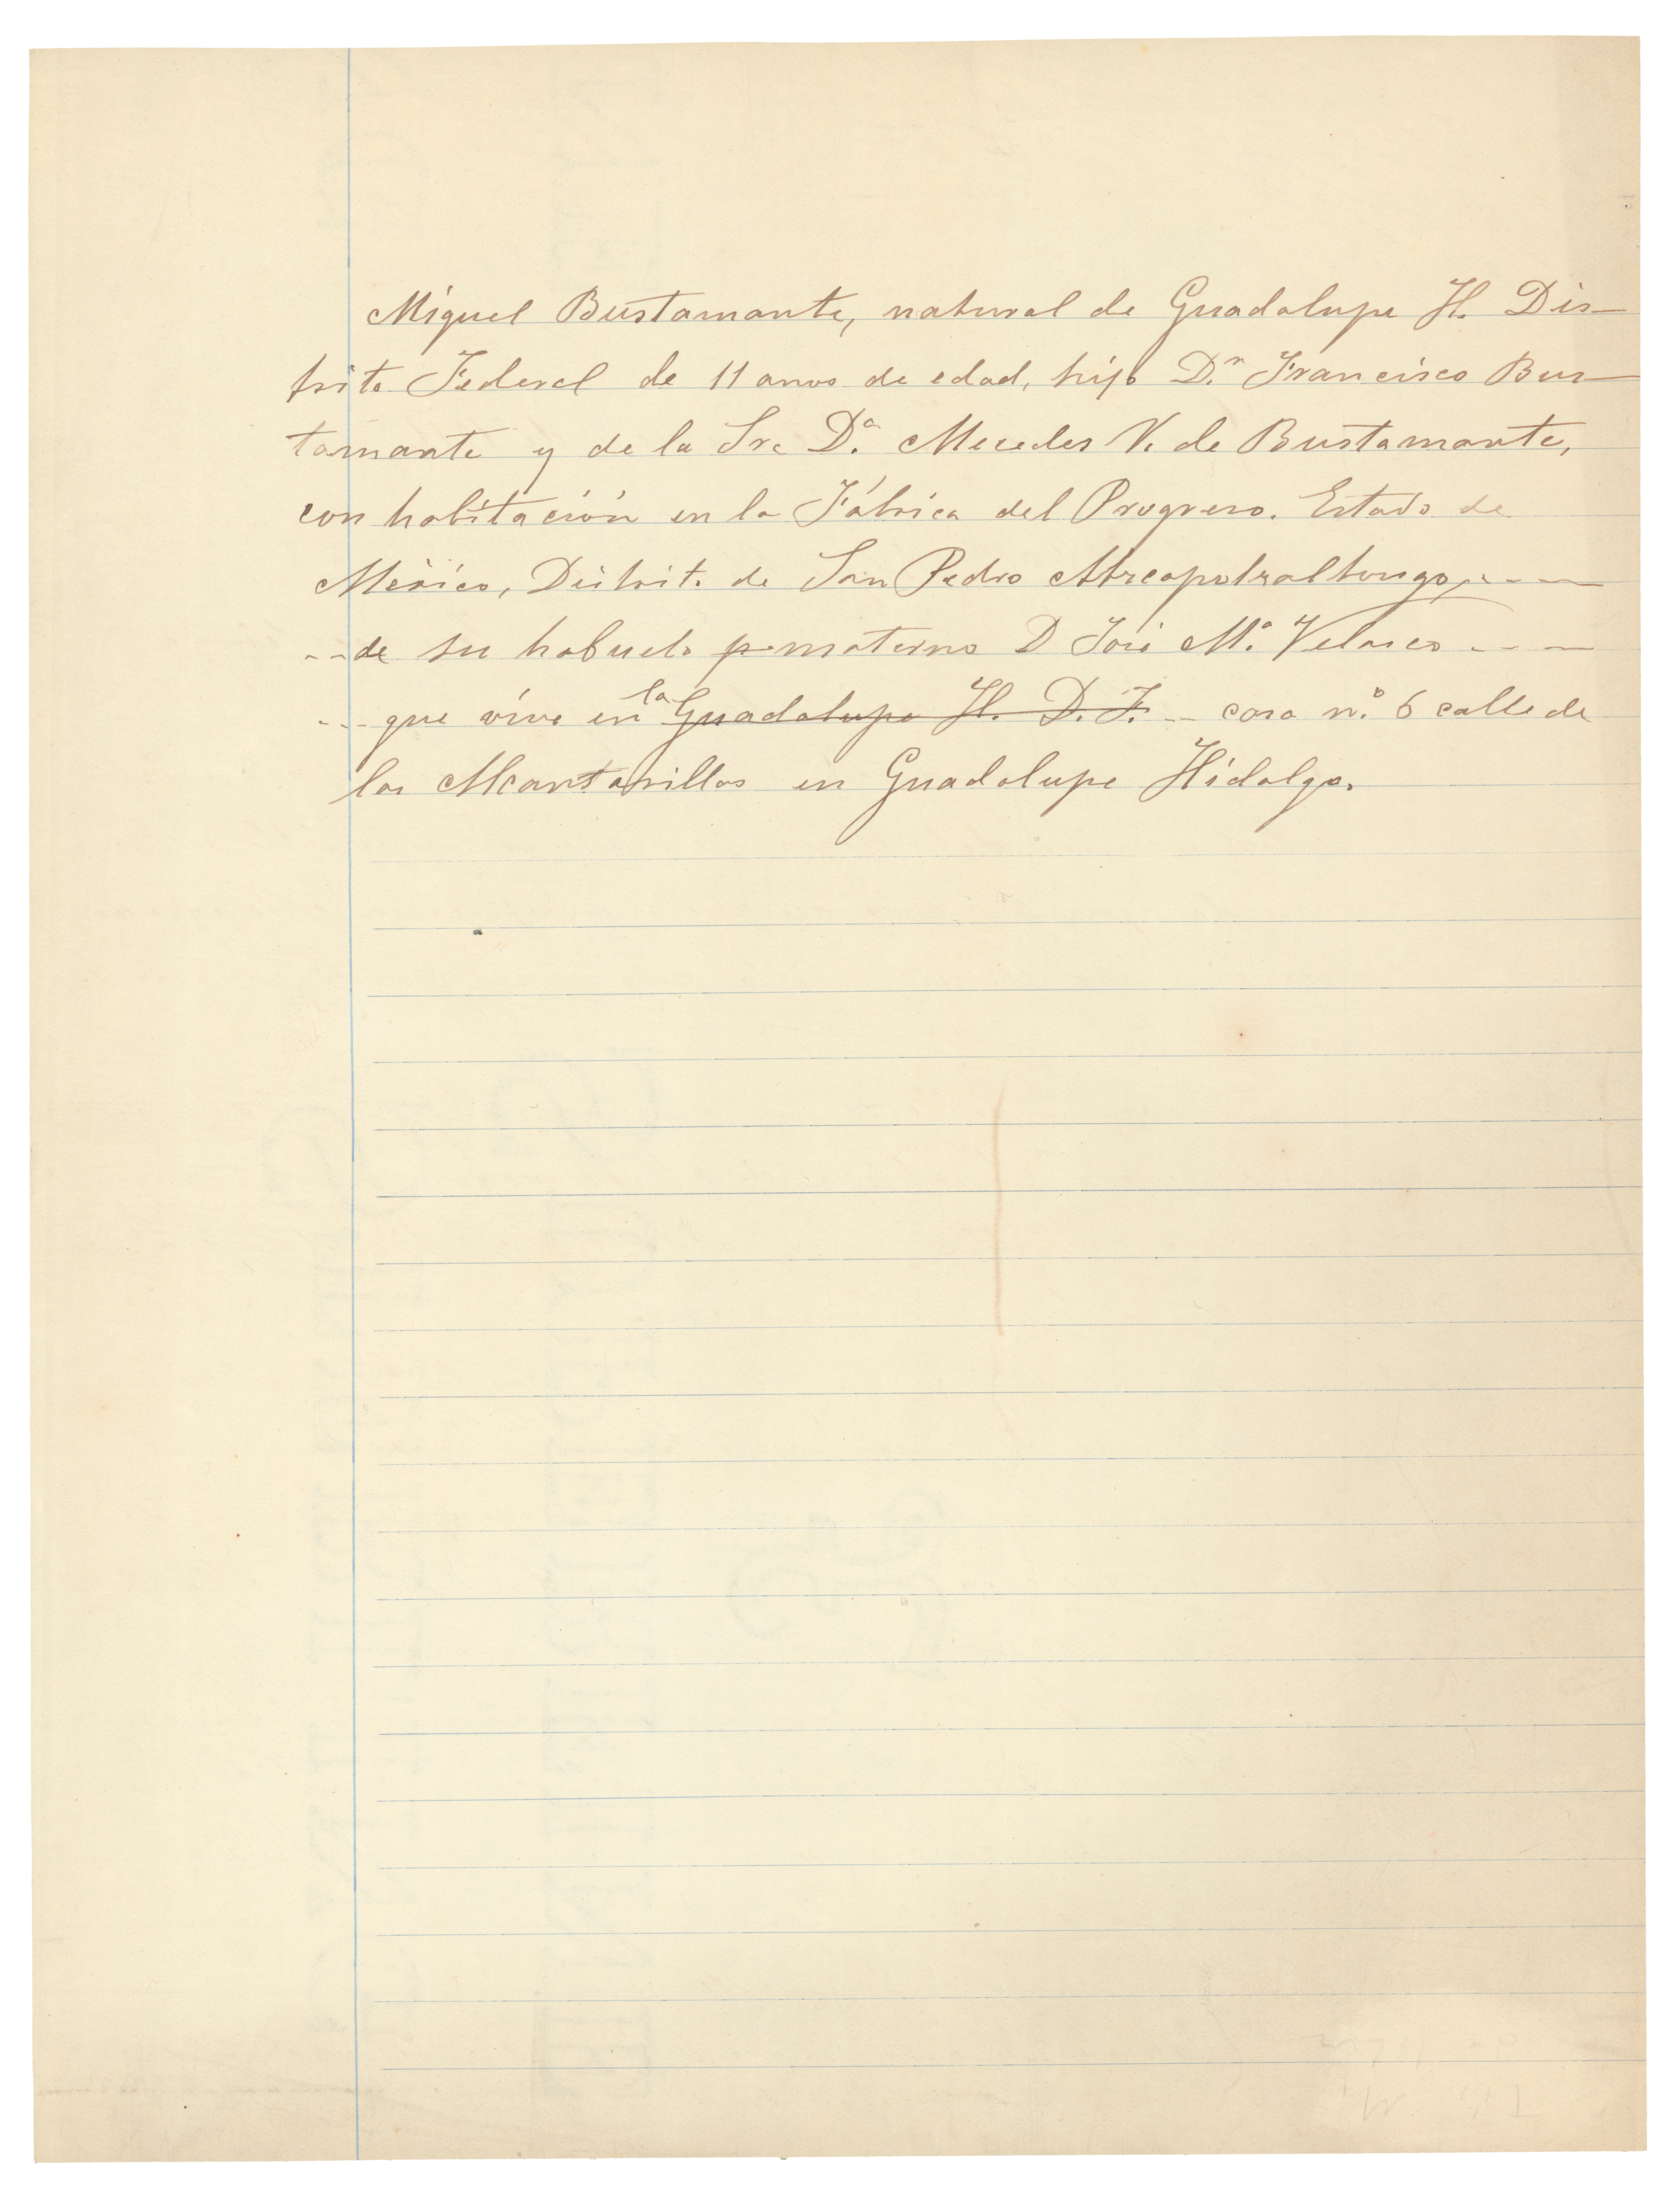 Miguel Bustamante, natural de Guadalupe H. Dis-
trito Federal de 11 anos de edad, hijo D.n Francisco Bus-
tamante y de la Sra D.a Mercedes V. de Bustamante,
con habitación en la Fábrica del Progreso. Estado de
México, Distrito de San Pedro Atzcapotzaltongo, - - -
- - de su habuelo p materno D José M.a Velasco - - -
- - que vive en la Guadalupe H. D. F. - casa n.o 6 calle de
las Alcantarillas en Guadalupe Hidalgo.